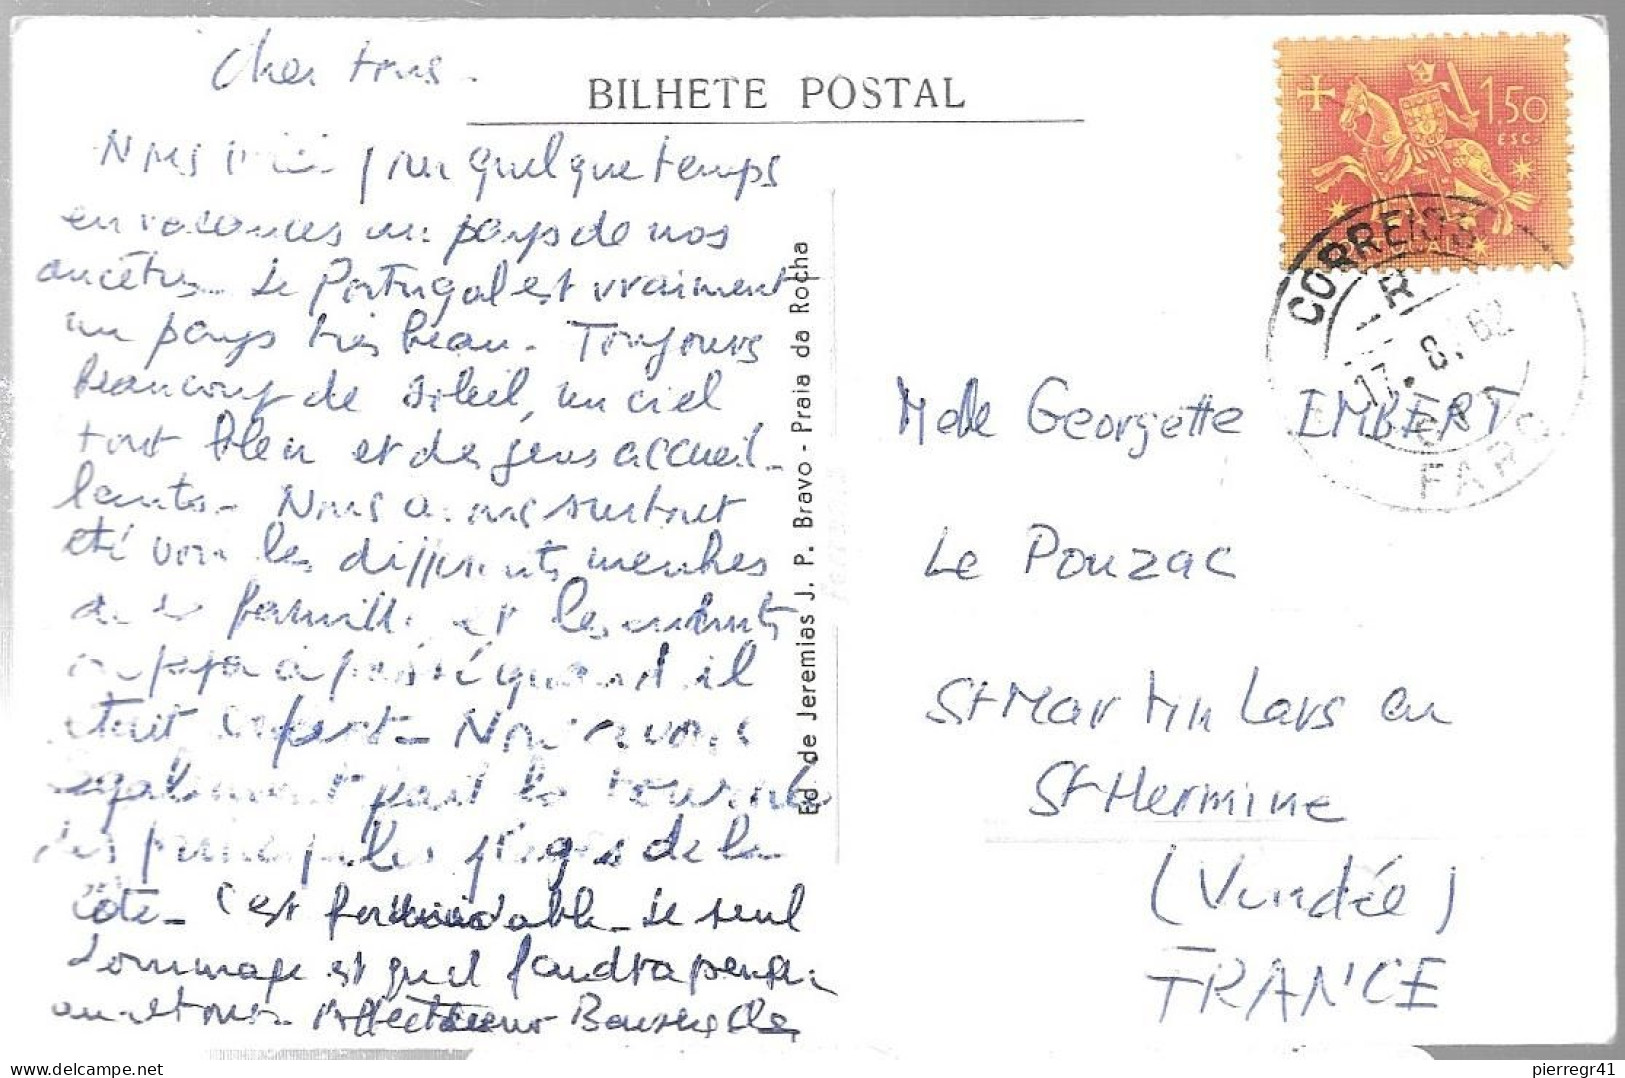 Cher tous.
BILHETE POSTAL
1,50
ESC.
Nous voici pour quelque temps
en vacances au pays de nos
ancêtres. Le Portugal est vraiment
un pays très beau. Toujours
beaucoup de soleil, un ciel
tout bleu et des gens accueil-
lants. Nous avons surtout
été voir les différents membres
de la famille et les endroits
où papa a passé quand il
était enfant. Nous avons
également fait la tournée
des principales plages de la
côte. C'est formidable. Le seul
dommage est qu'il faudra penser
au retour. Affectueux
Ed de Jeremias J. P. Bravo - Praia da Rocha
CORREIOS
17.8.62
FARO
Melle Georgette IMBERT
Le Pouzac
St Martin Lars en
St Hermine
(Vendée)
FRANCE
pierregr41